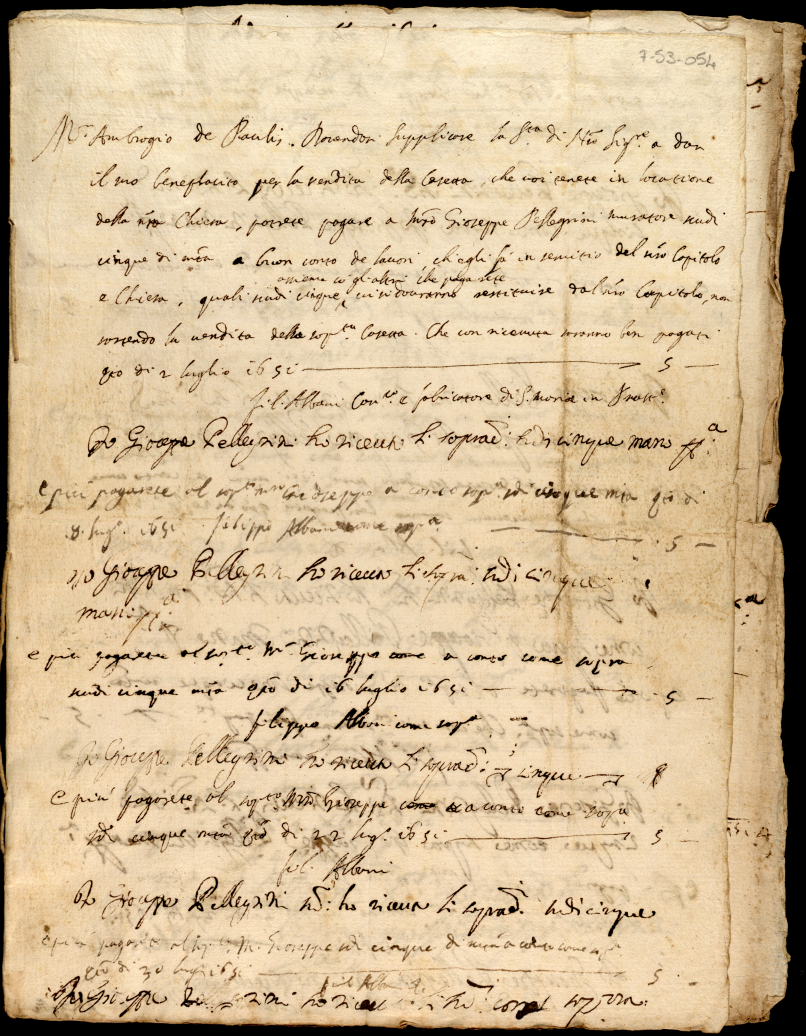 7-53-054
Mr. Ambrogio de Paulis. Dovendosi supplicare la Stà di Nro Sigre. a dar
il suo beneplacito per la vendita della Casetta, che voi tenete in locatione
della nra Chiesa, potrete pagare a Mro Gioseppe Pellegrini muratore scudi
cinque di mta a buon conto de lavori, ch'egli fà in servitio del nro Capitolo
assieme cò gli altri che pagarete
e Chiesa, quali scudi cinque, vi si dovaranno restituire dal nro Capitolo, non
sortendo la vendita della sopta Casetta. Che con ricevuta saranno ben pagati
qto di 2 luglio 1651 5
fil. Albani Can.co e fabricatore di S. Maria in
Io Gioseppe Pellegrini ho riceuto li soprad. scudi cinque mano pp.a
e più pagarete al sopto mro Gioseppe a conto sopto sdi cinque mta qto di
8 lugo. 1651 filippo Albani come sopa 5
Io Gioseppe Pellegrini ho riceuto li sopra scudi cinque
mano pp.a
e più pagarete al sopto Mro Gioseppe a conto come sopra
scudi cinque mta qto di 16 luglio 1651 5
filippo Albani come sopa
Io Gioseppe Pellegrini ho riceuto li soprad. cinque
e più pagarete al sopto Mro Gioseppe a conto come sopa
sdi cinque mta qto di 22 lugo. 1651 5
fil. Albani
Io Gioseppe Pellegrini ho riceuto li soprad. scudi cinque
e più pagarete al sopto Mro Gioseppe sdi cinque di mta a conto come sopa
qto di 30 luglo 1651 5
fil. Albani
Io Gioseppe Pellegrini ho riceuto li come sopra